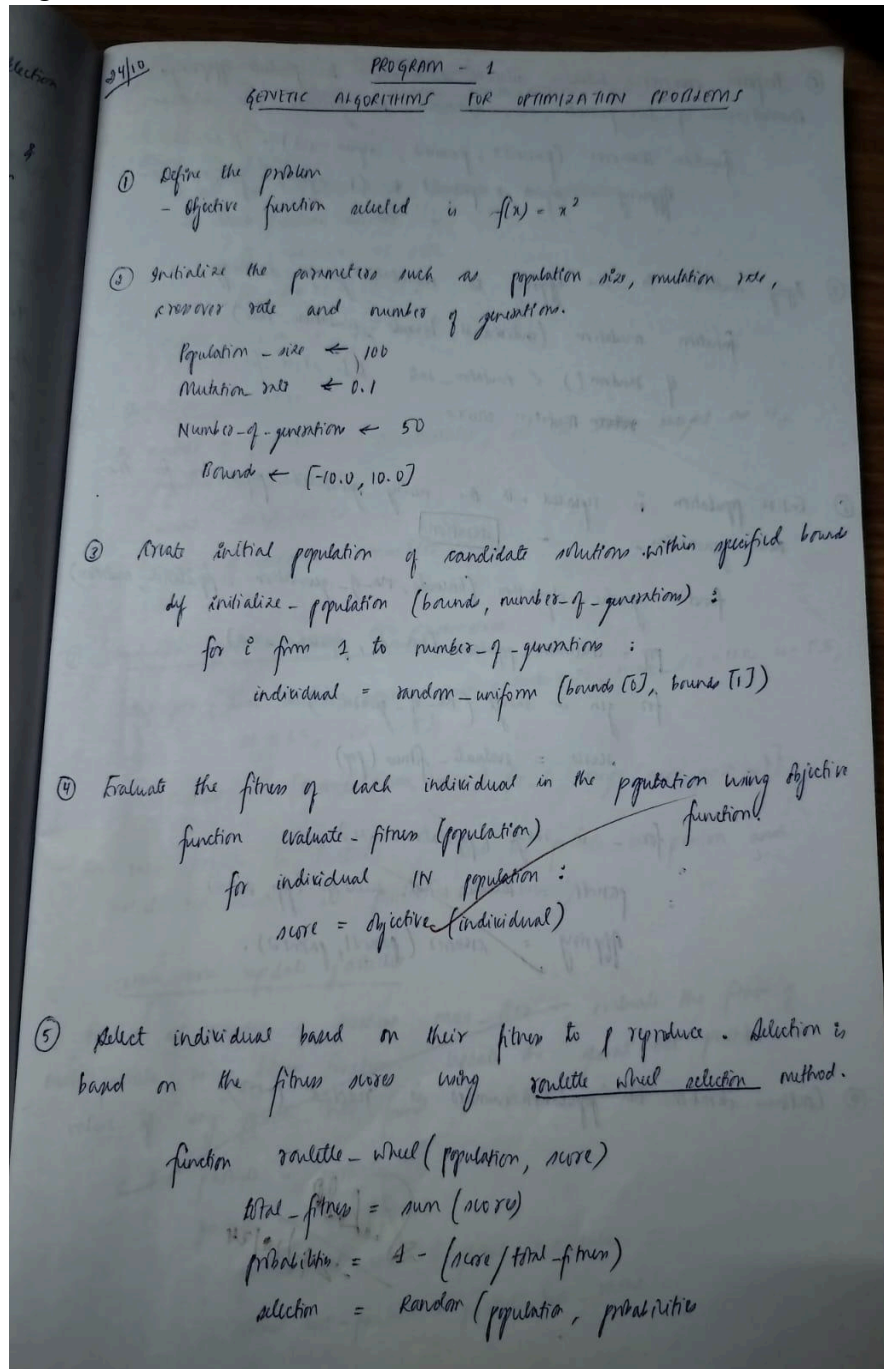 lection
&
24/10
PROGRAM - 1
GENETIC ALGORITHMS FOR OPTIMIZATION PROBLEMS
① Define the problem
- Objective function selected is f(x) = x²
② Initialize the parameters such as population size, mutation rate,
crossover rate and number of generations.
Population - size ← 100
Mutation rate ← 0.1
Number-of-generation ← 50
Bound ← [-10.0, 10.0]
③ Create initial population of candidate solutions within specified bounds
def initialize-population (bound, number-of-generations) :
for i from 1 to number-of-generations :
individual = random-uniform (bounds [0], bounds [1])
④ Evaluate the fitness of each individual in the population using objective
function.
function evaluate-fitness (population)
for individual IN population :
score = objective (individual)
⑤ Select individual based on their fitness to reproduce. Selection is
based on the fitness scores using roulette wheel selection method.
function roulette-wheel (population, score)
total-fitness = sum (scores)
probabilities = 1 - (score/total-fitness)
selection = Random (population, probabilities